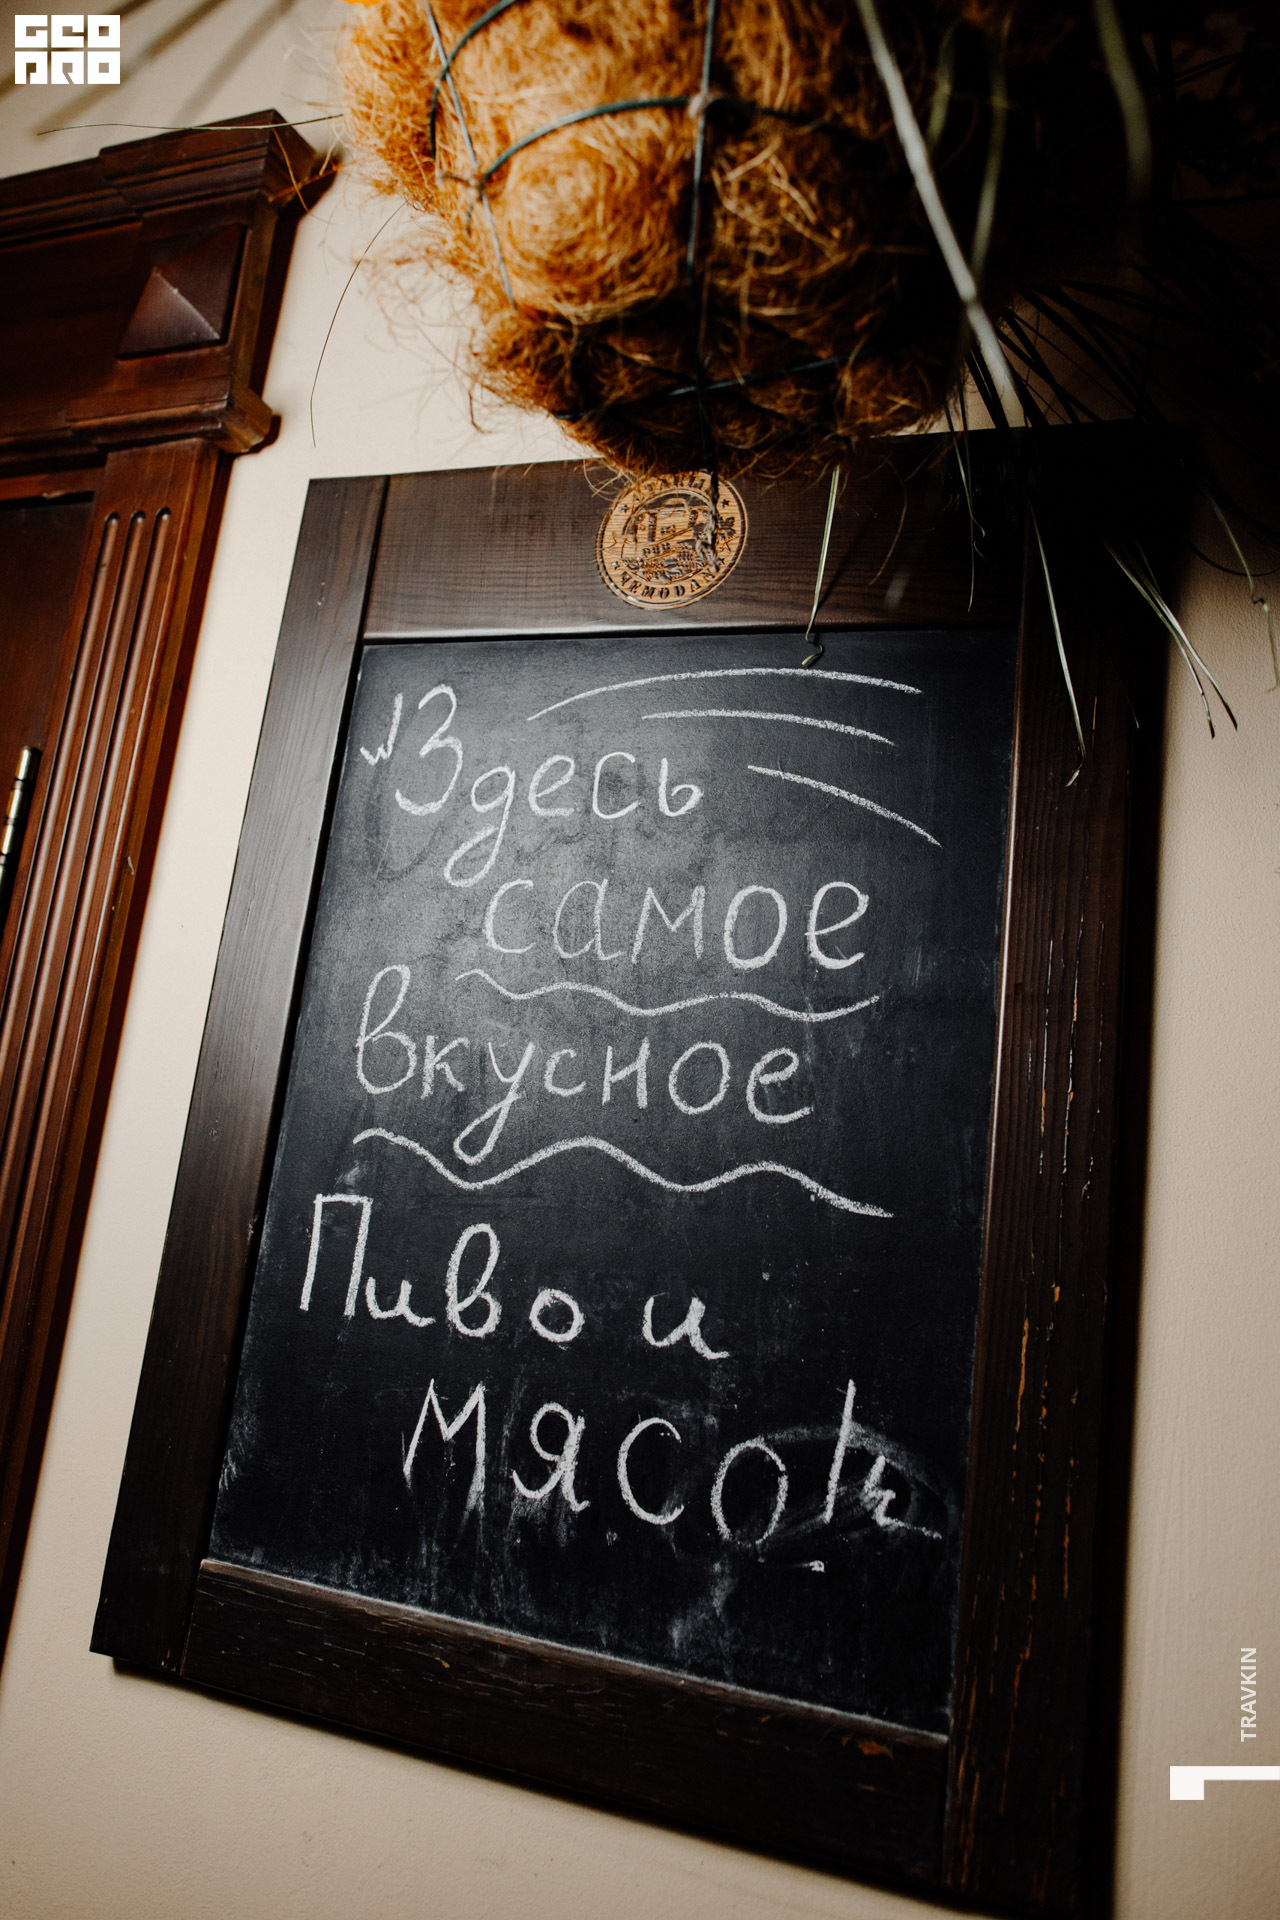 GEO
PRO
СТАРЫЙ
PUB
ЧЕМОДАН
"Здесь
самое
вкусное
Пиво и
мясо!"
TRAVKIN